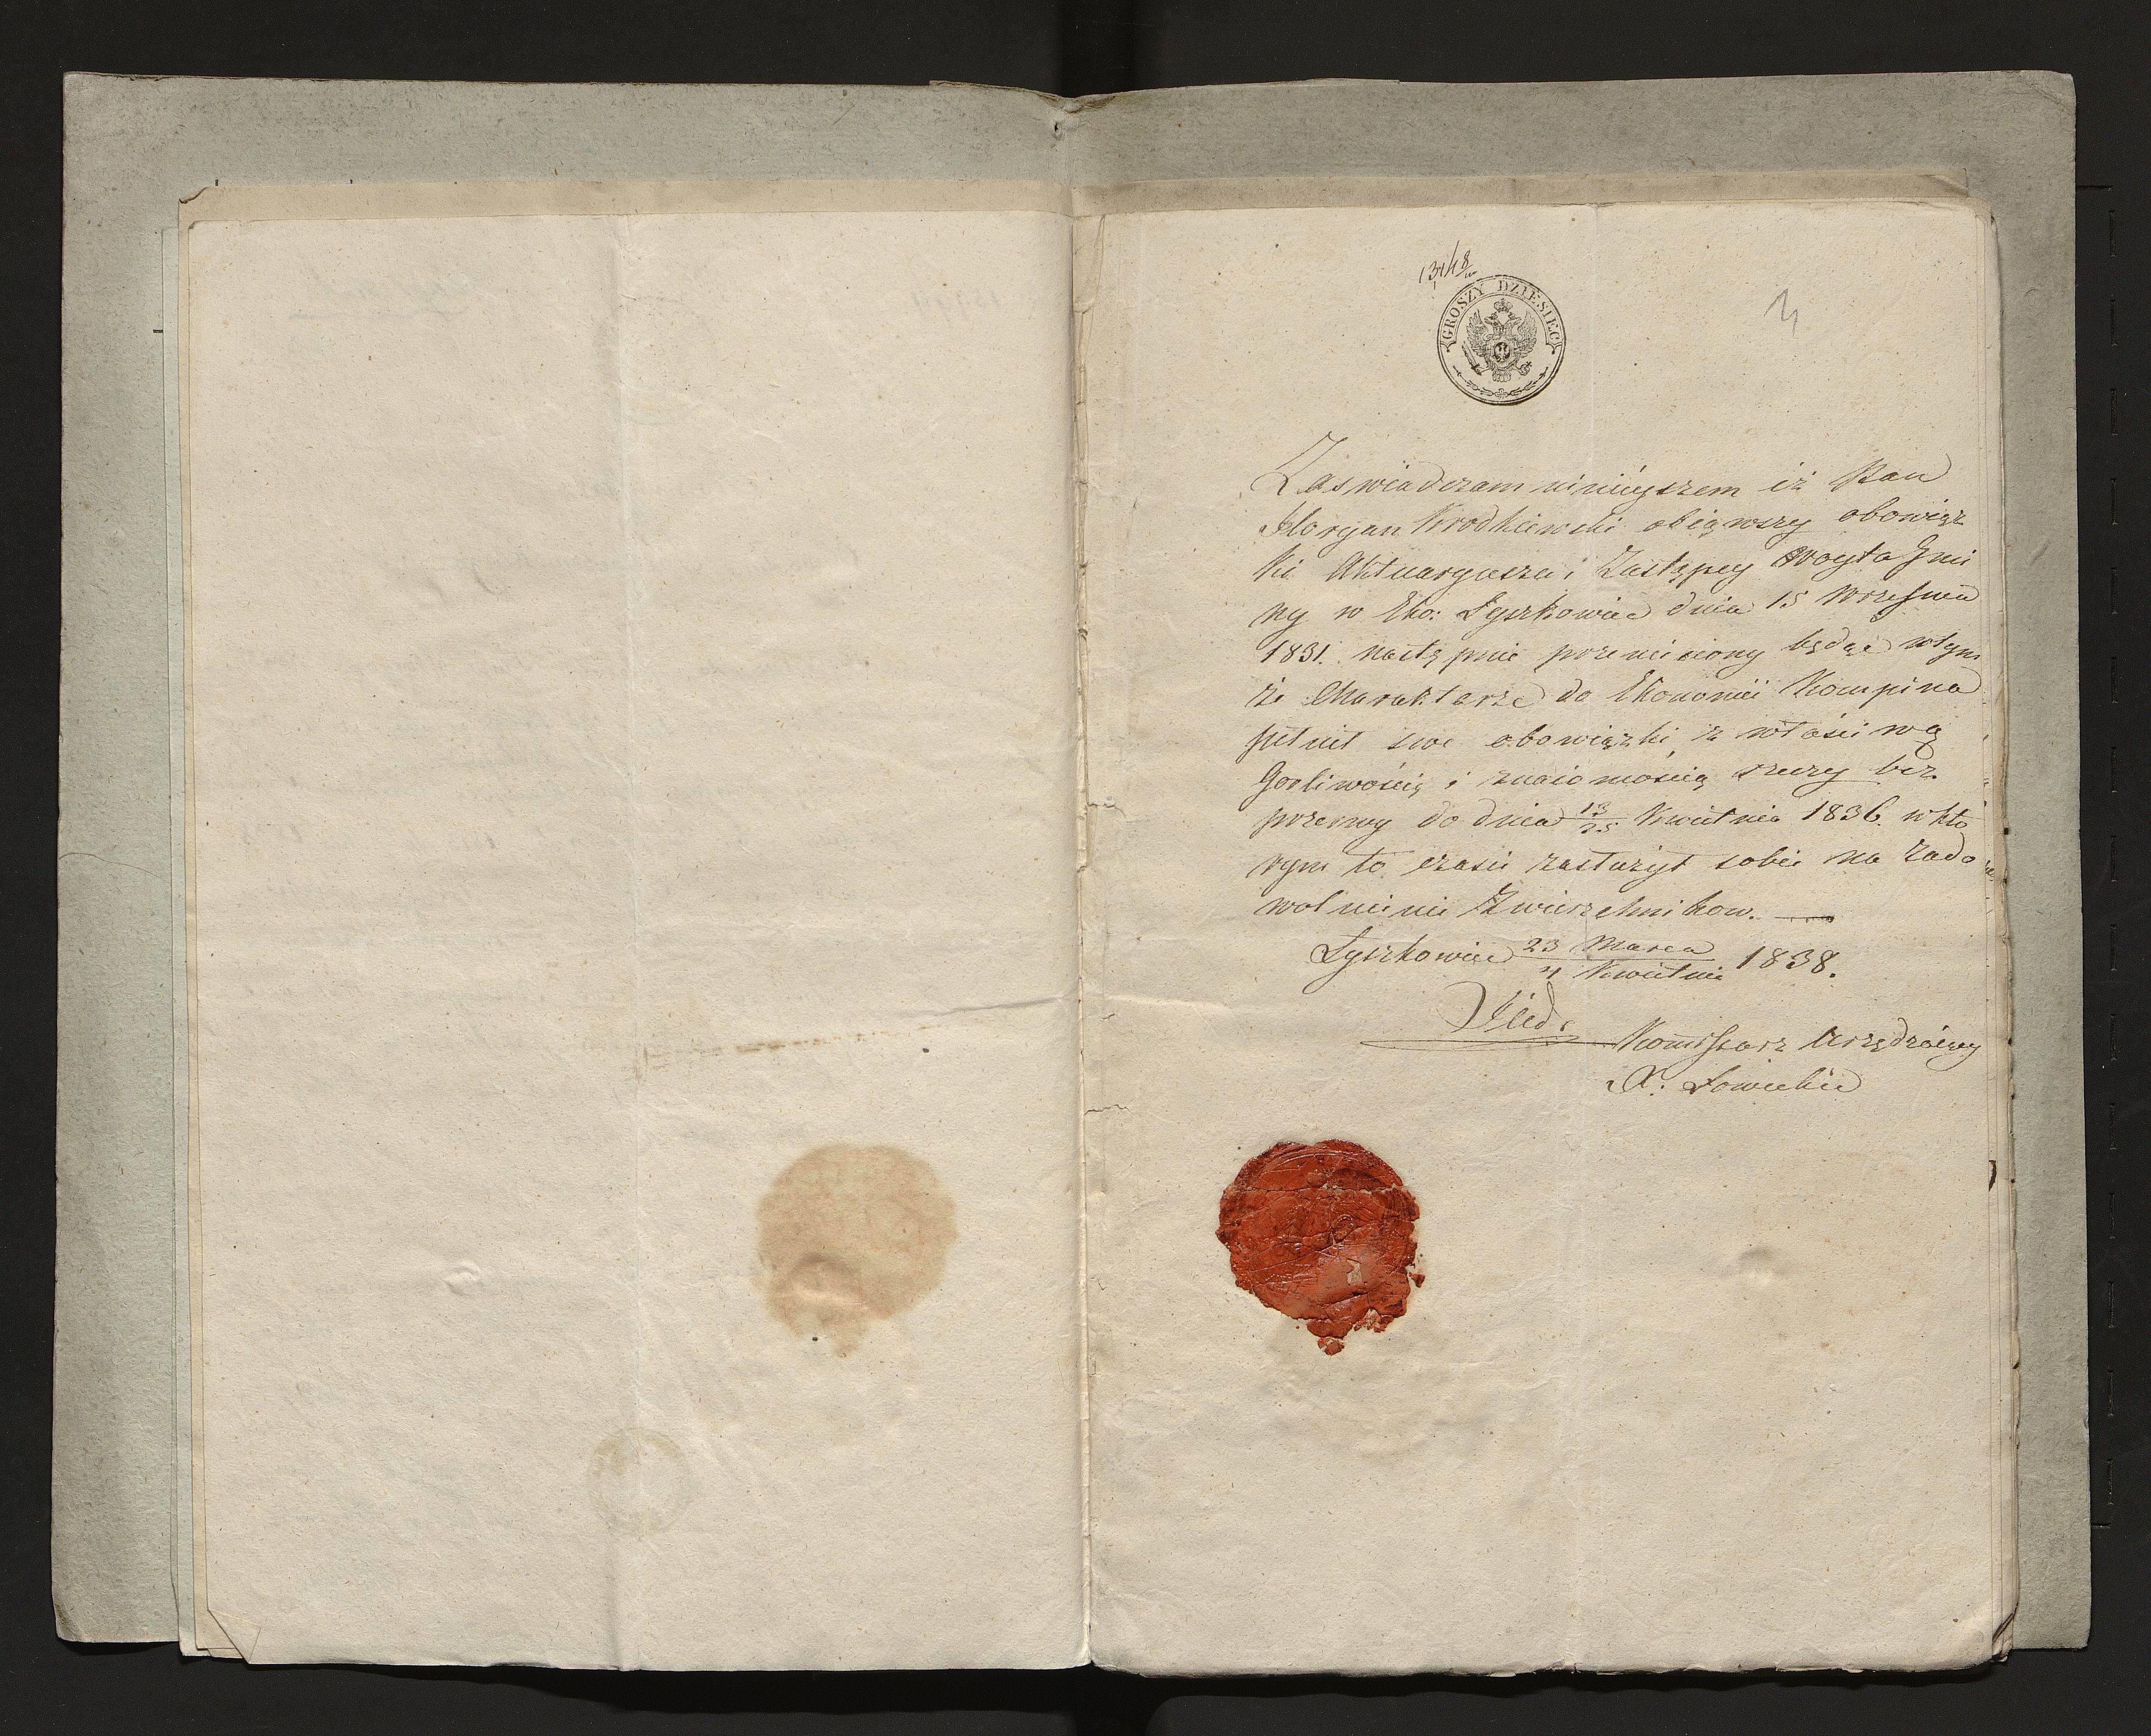 GROSZY DZIESIĘĆ
Zaswiadczam ninieyszem iż Pan
Floryan Brodkiewski obiąwszy obowiąz
ki Aktuaryusza i Zastępcy Woyta Gmi
ny w Eko: Łyszkowice dnia 15 Wrzesnia
1831. następnie przeniesiony będąc wtym
że Charakterze do Ekonomii Kompina
pełnił swe obowiązki z właściwą
Gorliwością i znaiomością rzeczy bez
przerwy do dnia 13/25 Kwietnia 1836. w któ
rym to czasie zasłużył sobie na zado
wolnienie Zwierzchników. —
Łyszkowice 23 Marca / 4 Kwietnia 1838.
Kommissarz Urzędzaiący
X. Łowickie